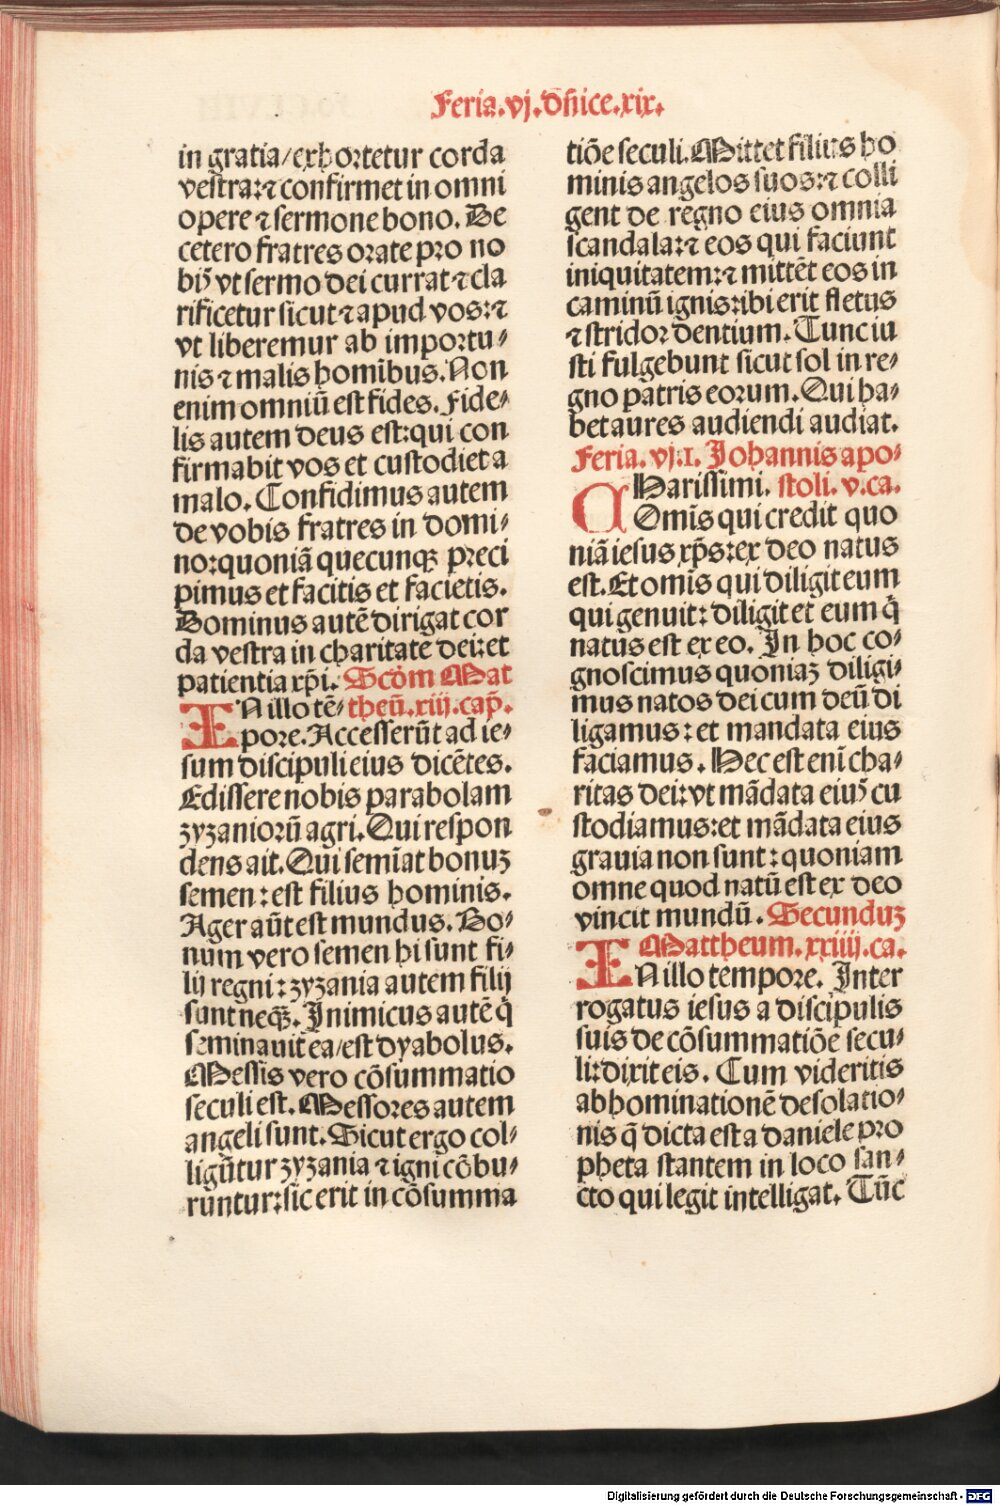 Feria.vj.dñice.xix.
in gratia/exhortetur corda
vestra:⁊ confirmet in omni
opere ⁊ sermone bono. De
cetero fratres orate pro no
bꝫ vt sermo dei currat ⁊ cla
rificetur sicut ⁊ apud vos:⁊
vt liberemur ab importu⸗
nis ⁊ malis homĩbus. Non
enim omniũ est fides. Fide⸗
lis autem deus est:qui con
firmabit vos et custodiet a
malo. Confidimus autem
de vobis fratres in domi⸗
no:quoniã quecunqꝫ preci
pimus et facitis et facietis.
Dominus autẽ dirigat cor
da vestra in charitate dei:et
patientia xp̃i. Scđm Mat
IN illo tẽ⸗ theũ.xiij.cap̃.
pore. Accesserũt ad ie⸗
sum discipuli eius dicẽtes.
Edissere nobis parabolam
zyzaniorũ agri. Qui respon
dens ait. Qui semĩat bonuꝫ
semen : est filius hominis.
Ager aũt est mundus. Bo⸗
num vero semen hi sunt fi⸗
lij regni : zyzania autem filij
sunt neq̃ꝫ. Inimicus autẽ q̃
seminauit ea/est dyabolus.
Messis vero cõsummatio
seculi est. Messores autem
angeli sunt. Sicut ergo col⸗
ligũtur zyzania ⁊ igni cõbu⸗
runtur:sic erit in cõsumma
tiõe seculi. Mittet filius ho
minis angelos suos:⁊ colli
gent de regno eius omnia
scandala:⁊ eos qui faciunt
iniquitatem:⁊ mittẽt eos in
caminũ ignis:ibi erit fletus
⁊ stridor dentium. Tunc iu
sti fulgebunt sicut sol in re⸗
gno patris eorum. Qui ha⸗
bet aures audiendi audiat.
Feria. vj.I. Johannis apo⸗
CHarissimi. stoli. v.ca.
Omĩs qui credit quo
niã iesus xp̃s:ex deo natus
est. Et omĩs qui diligit eum
qui genuit: diligit et eum q̃
natus est ex eo. In hoc co⸗
gnoscimus quoniaꝫ diligi⸗
mus natos dei cum deũ di
ligamus : et mandata eius
faciamus. Hec est enĩ cha⸗
ritas dei:vt mãdata eiuꝰ cu
stodiamus:et mãdata eius
grauia non sunt : quoniam
omne quod natũ est ex deo
vincit mundũ. Secunduꝫ
Mattheum. xxiiij.ca.
IN illo tempore. Inter
rogatus iesus a discipulis
suis de cõsummatiõe secu⸗
li:dixit eis. Cum videritis
abhominationẽ desolatio⸗
nis q̃ dicta est a daniele pro
pheta stantem in loco san⸗
cto qui legit intelligat. Tũc
Digitalisierung gefördert durch die Deutsche Forschungsgemeinschaft - DFG